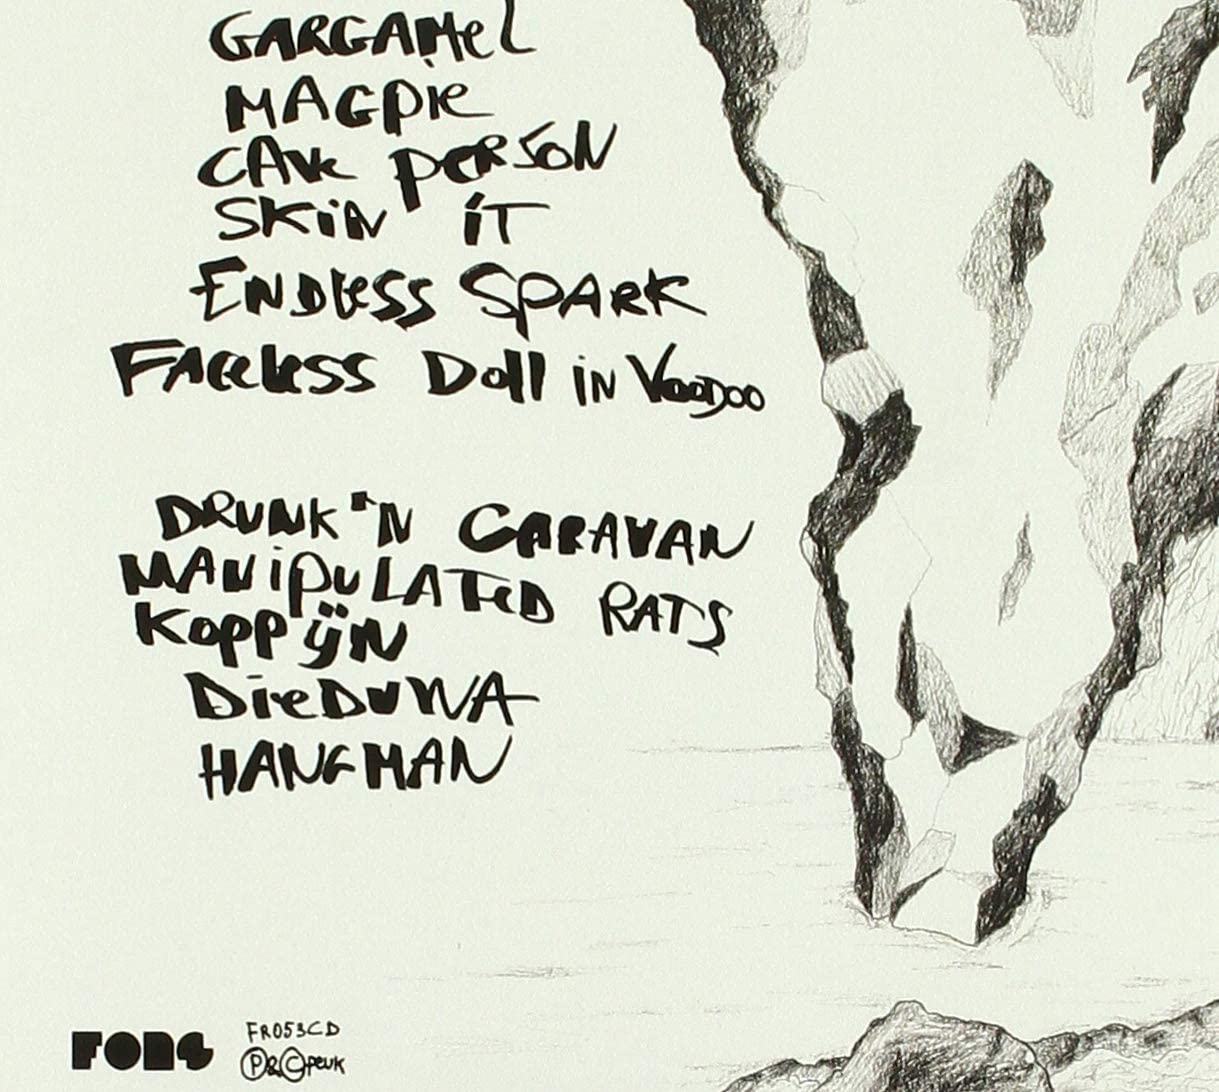 GARGAMEL
MAGPIE
CAVE PERSON
SKIN IT
ENDLESS SPARK
FACELESS DOLL IN VOODOO
DRUNK 'N CARAVAN
MANIPULATED RATS
KOPPIJN
DIEDUWA
HANGMAN
FONS
FR053CD
℗&© PEUK